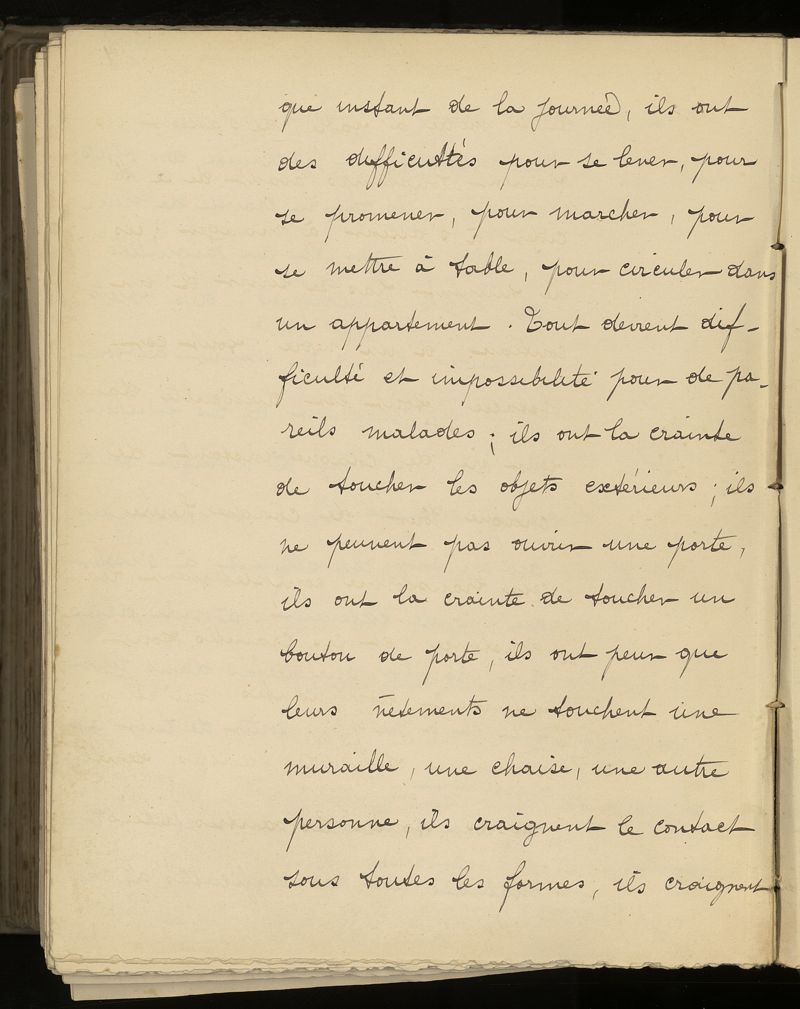 que instant de la journée, ils ont
des difficultés pour se lever, pour
se promener, pour marcher, pour
se mettre à table, pour circuler dans
un appartement. Tout devient dif-
ficulté et impossibilité pour de pa-
reils malades; ils ont la crainte
de toucher les objets extérieurs; ils
ne peuvent pas ouvrir une porte,
ils ont la crainte de toucher un
bouton de porte, ils ont peur que
leurs vêtements ne touchent une
muraille, une chaise, une autre
personne, ils craignent le contact
sous toutes les formes, ils craignent